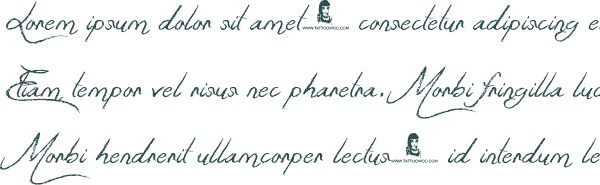 Lorem ipsum dolor sit amet WWW.TATTOOWOO.COM consectetur adipiscing e
Etiam tempor vel risus nec pharetra. Morbi fringilla luc
Morbi hendrerit ullamcorper lectus WWW.TATTOOWOO.COM id interdum le